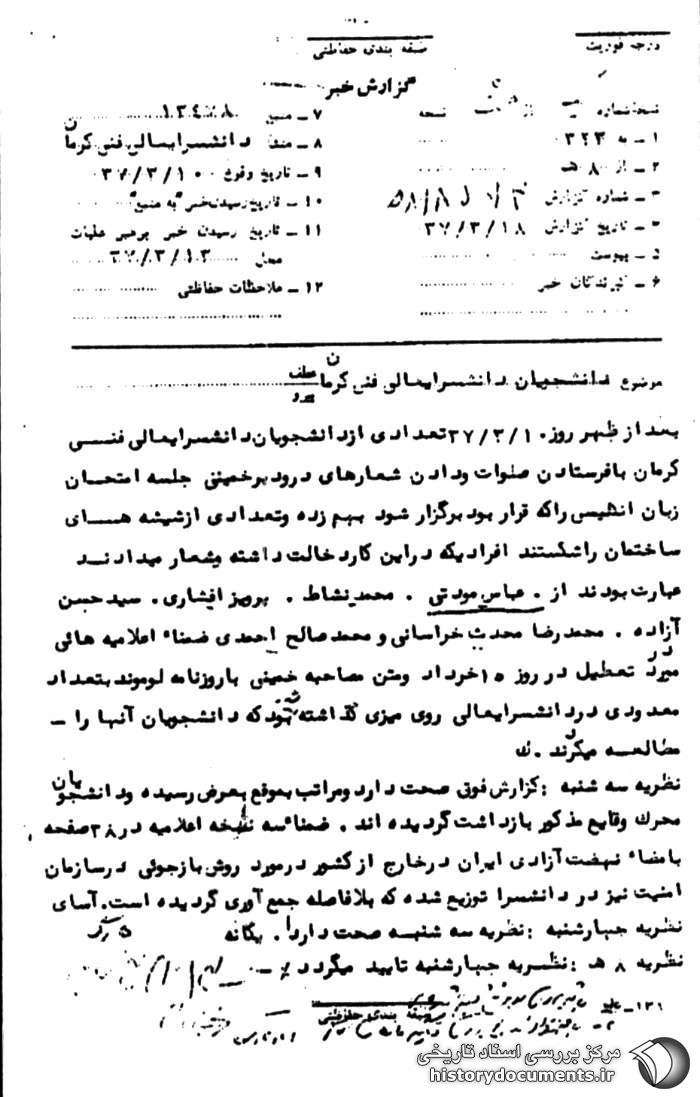 درجه فوریت
طبقه بندی حفاظتی
گزارش خبر
نسخه شماره از نسخه
۱ – به ۳۲۳
۲ – از ۸ هـ
۳ – شماره گزارش
۴ – تاریخ گزارش ۳۷/۳/۱۸
۵ – پیوست
۶ – گیرندگان خبر
۷ – منبع ۱۳۴۷۸
۸ – منشأ دانشسرایعالی فنی کرمان
۹ – تاریخ وقوع ۳۷/۳/۱۰
۱۰ – تاریخ رسیدن خبر "به منبع"
۱۱ – تاریخ رسیدن خبر برهبر عملیات
محل ۳۷/۳/۱۳
۱۲ – ملاحظات حفاظتی
موضوع دانشجویان دانشسرایعالی فنی کرمان
بعد از ظهر روز ۳۷/۳/۱۰ تعدادی ازدانشجویان دانشسرایعالی فنسی
کرمان بافرستادن صلوات ودادن شعارهای درود برخمینی جلسه امتحان
زبان انگلیسی راکه قرار بود برگزار شود بهم زده وتعدادی ازشیشه هسای
ساختمان راشکستند افرادیکه دراین کار دخالت داشته وشعار میدادند
عبارت بودند از . عباس مودتی . محمد نشاط . پرویز افشاری . سید حسن
آزاده . محمد رضا محدث خراسانی و محمد صالح احمدی ضمناً اعلامیه هائی
در مورد تعطیل در روز ۱۵ خرداد ومتن مصاحبه خمینی باروزنامه لوموند بتعداد
معدودی در دانشسرایعالی روی میزی گذاشته شده بود که دانشجویان آنها را –
مطالعه میکردند . ك
نظریه سه شنبه : گزارش فوق صحت دارد ومراتب بموقع بعرض رسیده ودانشجویان
محرك وقایع مذکور بازداشت گردیده اند . ضمناً سه نسخه اعلامیه در ۳۸ صفحه
بامضاء نهضت آزادی ایران درخارج ازکشور درمورد روش بازجوئی درسازمان
امنیت نیز در دانشسرا توزیع شده که بلافاصله جمع آوری گردیده است. آسای
نظریه چهارشنبه : نظریه سه شنبه صحت دارد . یگانه
نظریه ۸ هـ : نظریه چهارشنبه تایید میگردد
طبقه بندی حفاظتی
مرکز بررسی اسناد تاریخی
historydocuments.ir